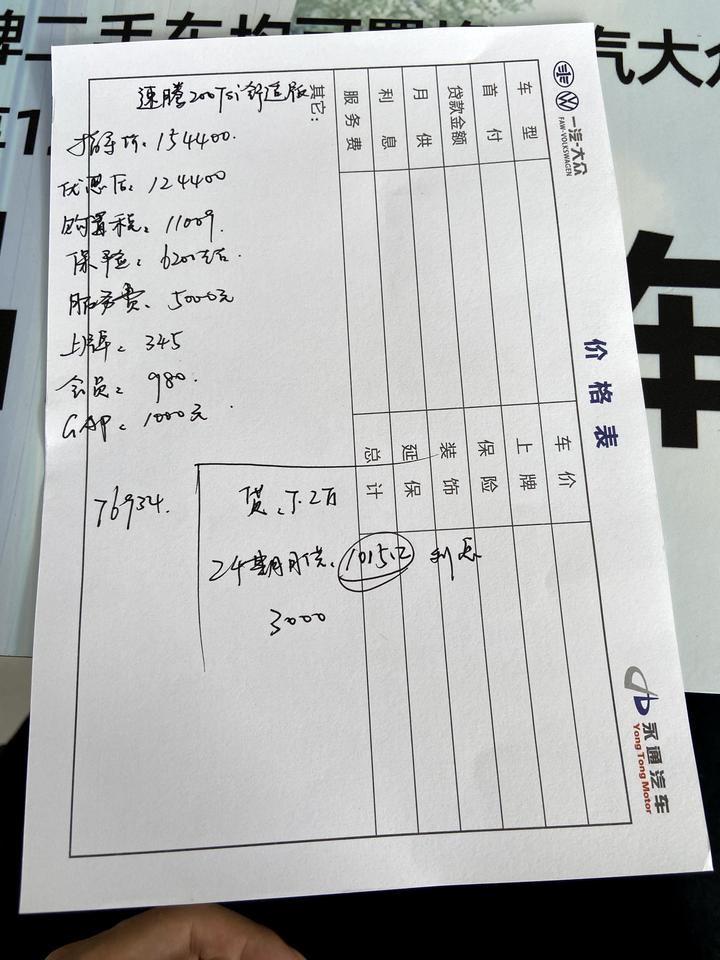 牌二手车均可置换
汽大众
车
一汽-大众
FAW-VOLKSWAGEN
价格表
永通汽车
Yong Tong Motor
车型
首付
贷款金额
月供
利息
服务费
其它:
车价
上牌
保险
装饰
延保
总计
速腾200TSi舒适版
指导价:154400.
优惠后:124400
购置税:11009.
保险:6200左右.
服务费、5000元
上牌:345
会员:980.
GAP:1000元
76934.
贷:7.2万
24期月供: 利息
3000